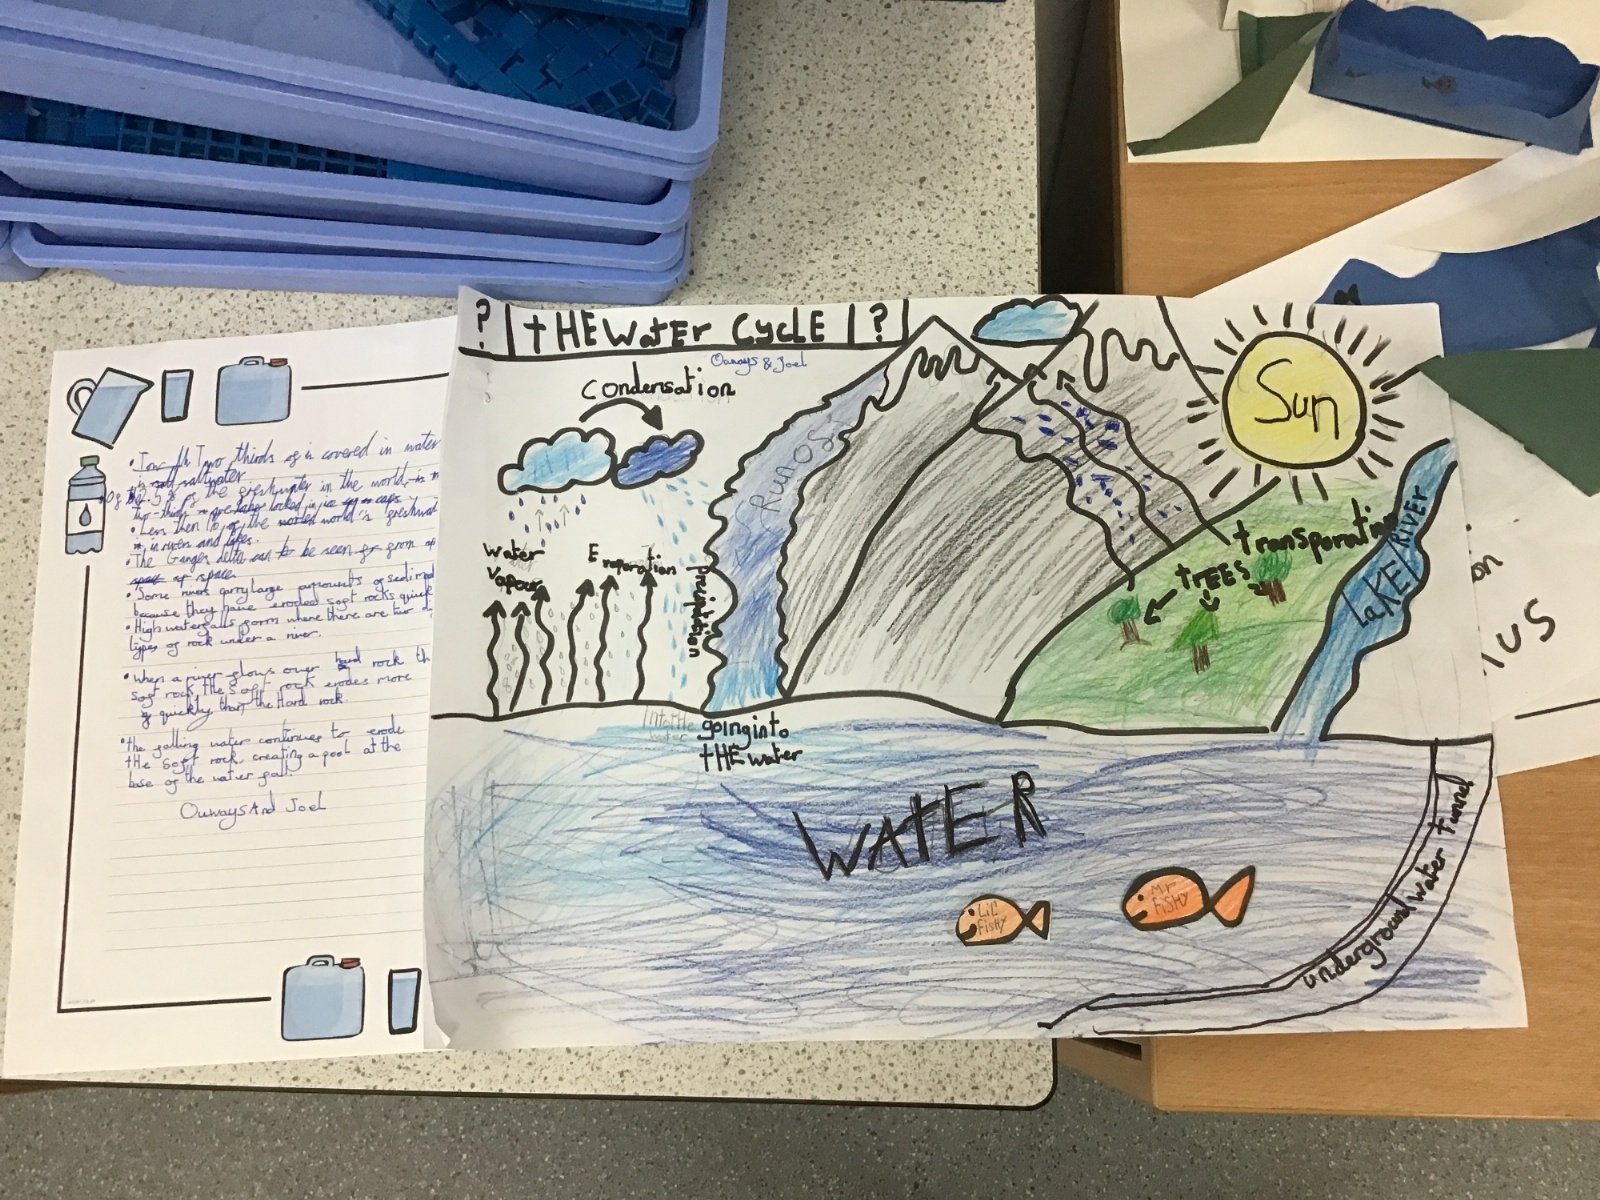 ? THE WATER CYCLE ?
Ouways & Joel
Condensation
Run Off
Sun
Water
Vapour
Evaporation
precipitation
transporation
trees
LaKE/RIVER
going into
tHE water
WATER
Lil'
FisHy
Mr
FiSHY
underground water tunnel
Two thirds of is covered in water
saltwater
of the freshwater in the world is
two-thirds locked in ice caps
• Less then of the world's freshwat
in rivers and lakes.
• The Ganges delta can be seen from
space
• Some rivers carry large amounts of sedim
because they have eroded soft rocks quick
• High waterfalls form where there are two
types of rock under a river.
• When a river flows over hard rock th
soft rock the soft rock erodes more
quickly than the Hard rock.
• the falling water continues to erode
tHe soft rock, creating a pool at the
base of the water fall
Ouways And Joel